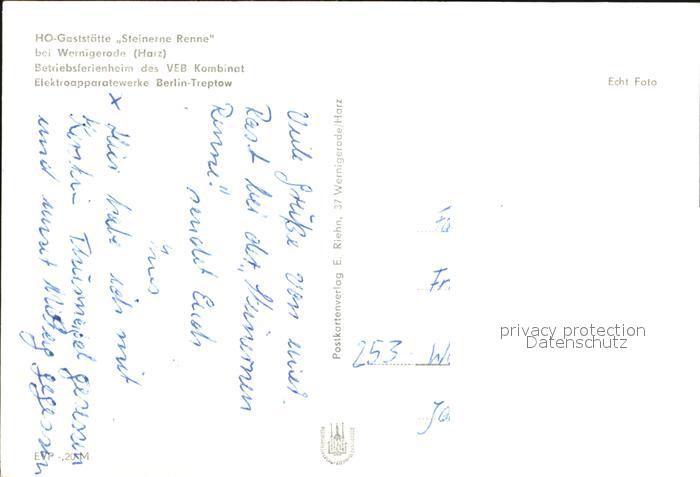 HO-Gaststätte „Steinerne Renne"
bei Wernigerode (Harz)
Betriebsferienheim des VEB Kombinat
Elektroapparatewerke Berlin-Treptow
Echt Foto
Viele Grüße von einer
Rast bei der „Steinernen
Renne" sendet Euch
x Hier habe ich mit
Kirstin gesessen
und unser Mittag gegessen
Postkartenverlag E. Riehn, 37 Wernigerode/Harz
Fr
253
W
privacy protection
Datenschutz
EVP -,20 M